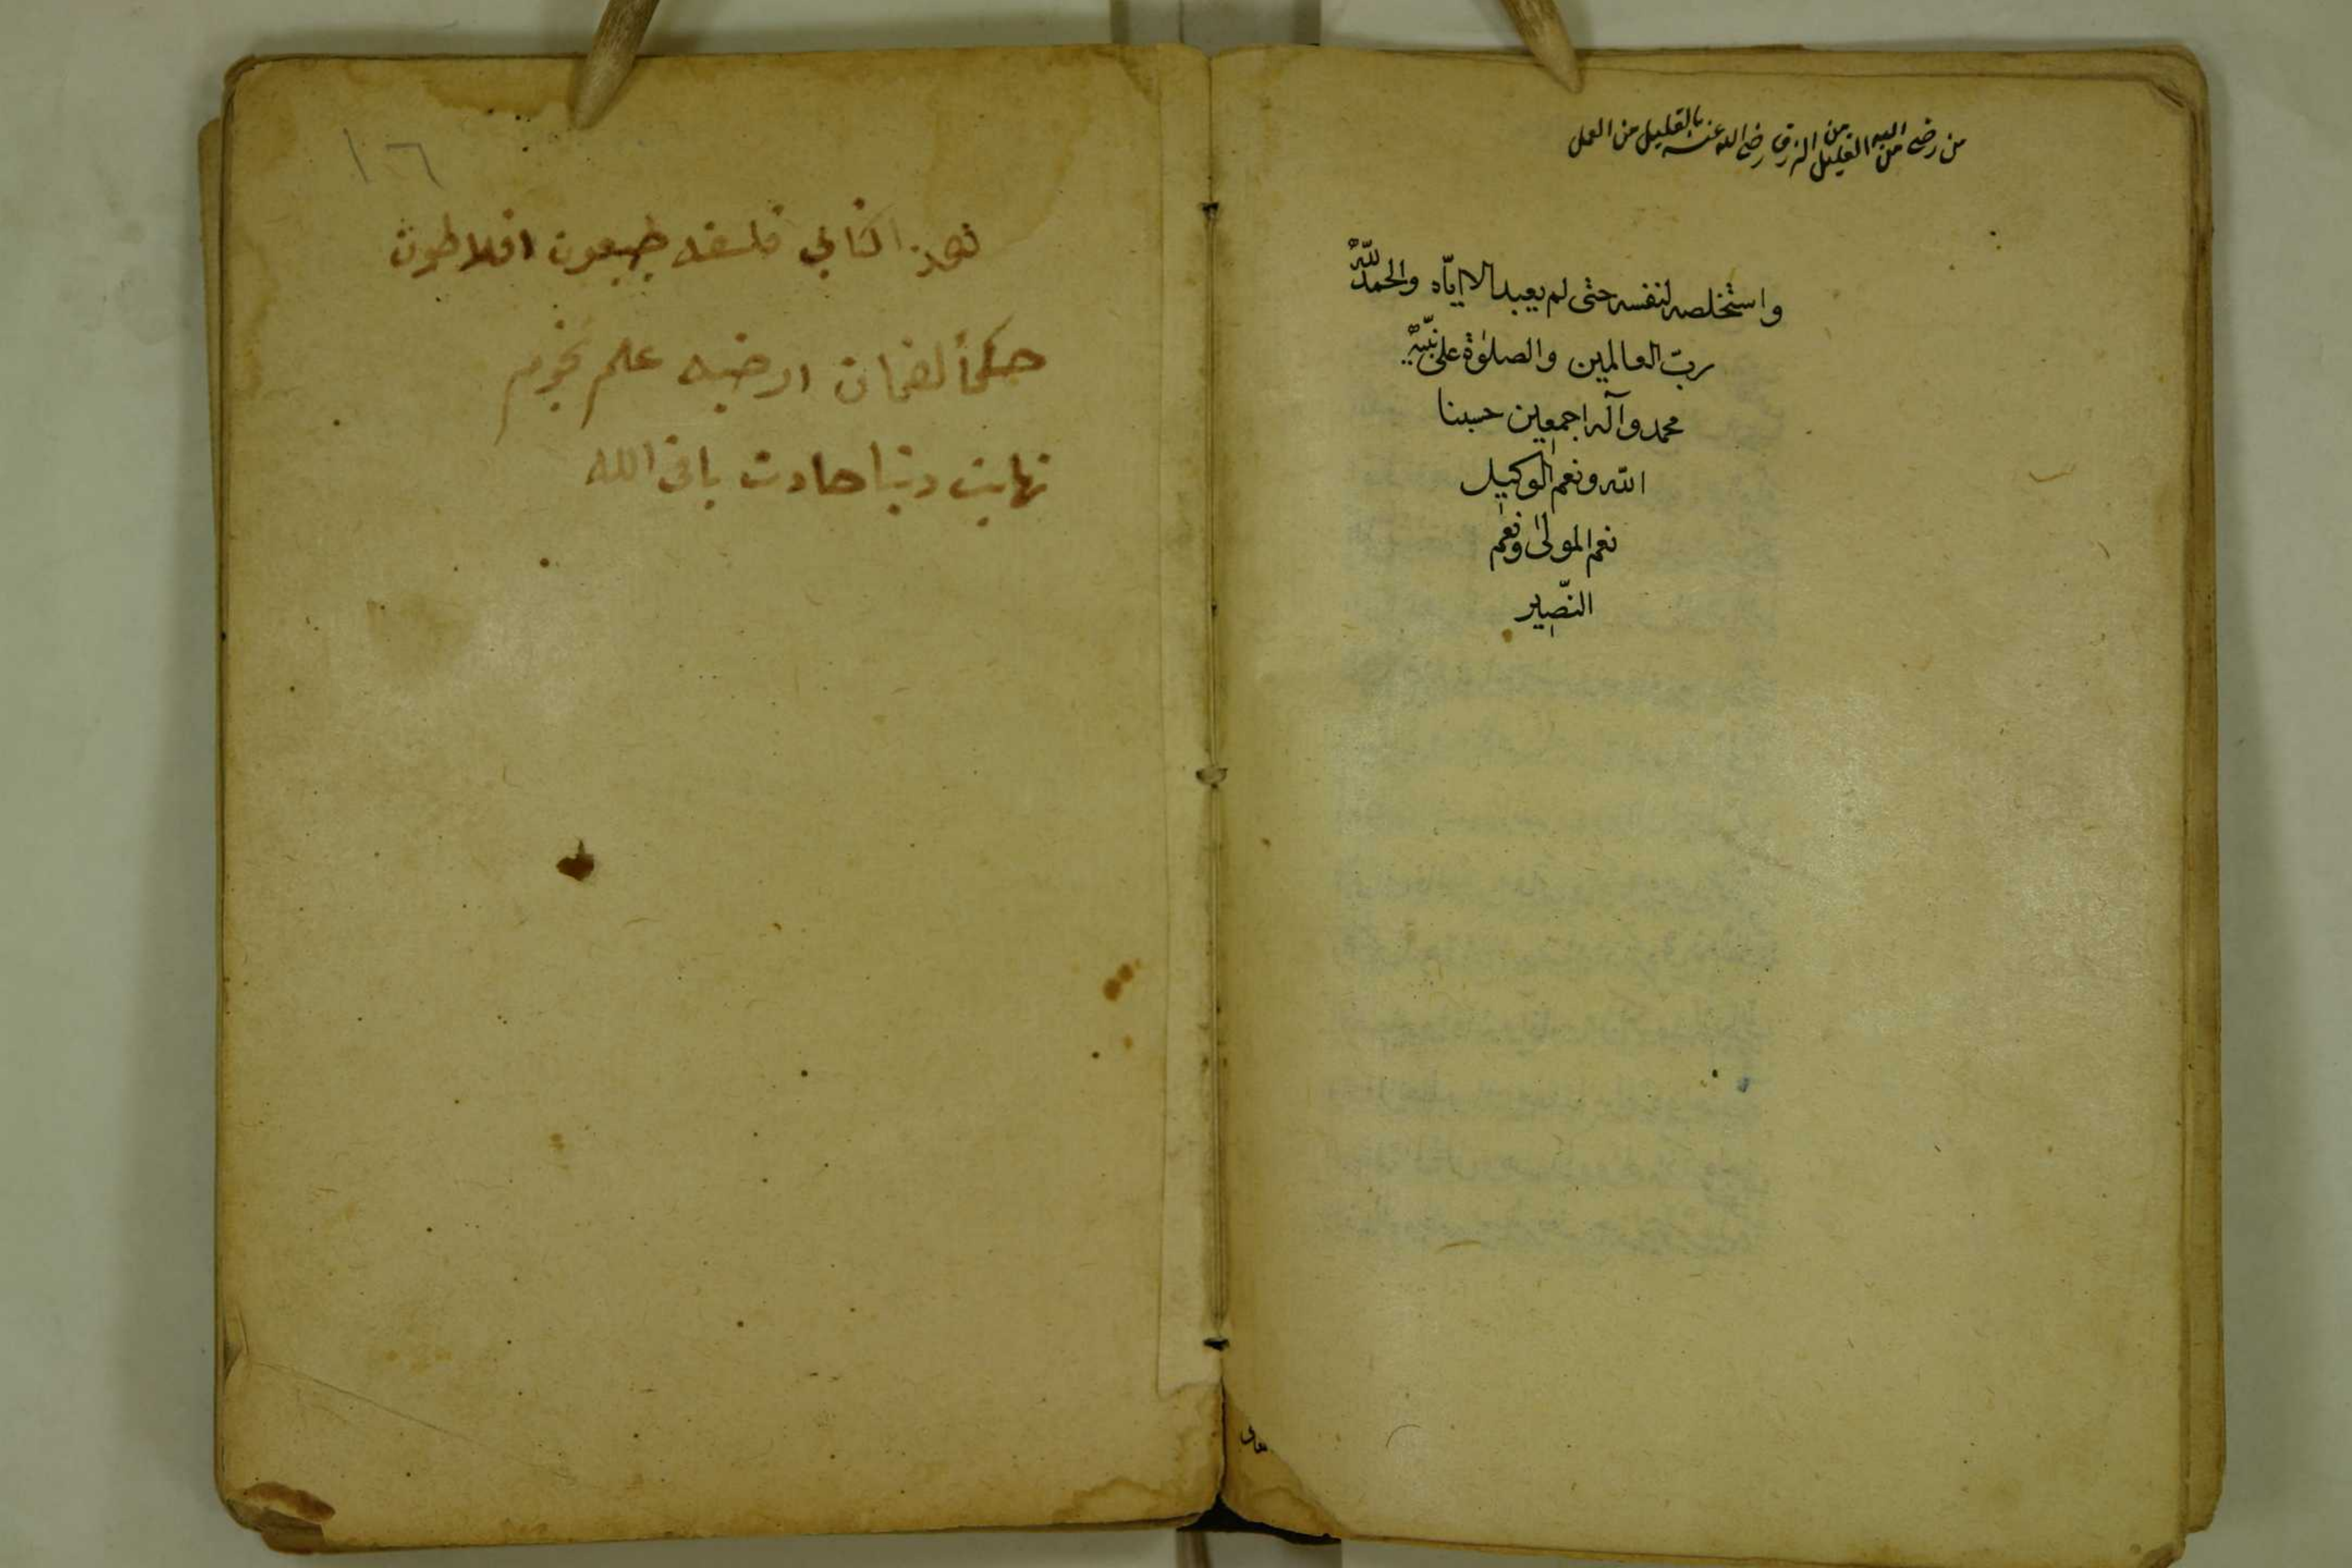 من رضى من الله بالقليل من الرزق رضى الله عنه بالقليل من العمل
واستخلصه لنفسه حتى لم يعبد الا ايّاه والحمد لله
ربّ العالمين والصلوٰة على نبيّه
محمد وآله اجمعين حسبنا
الله ونعم الوكيل
نعم المولىٰ ونعم
النّصير
١٠٦
فلسفه افلاطون
علم نجوم
نهايت دنيا حادث باقى الله